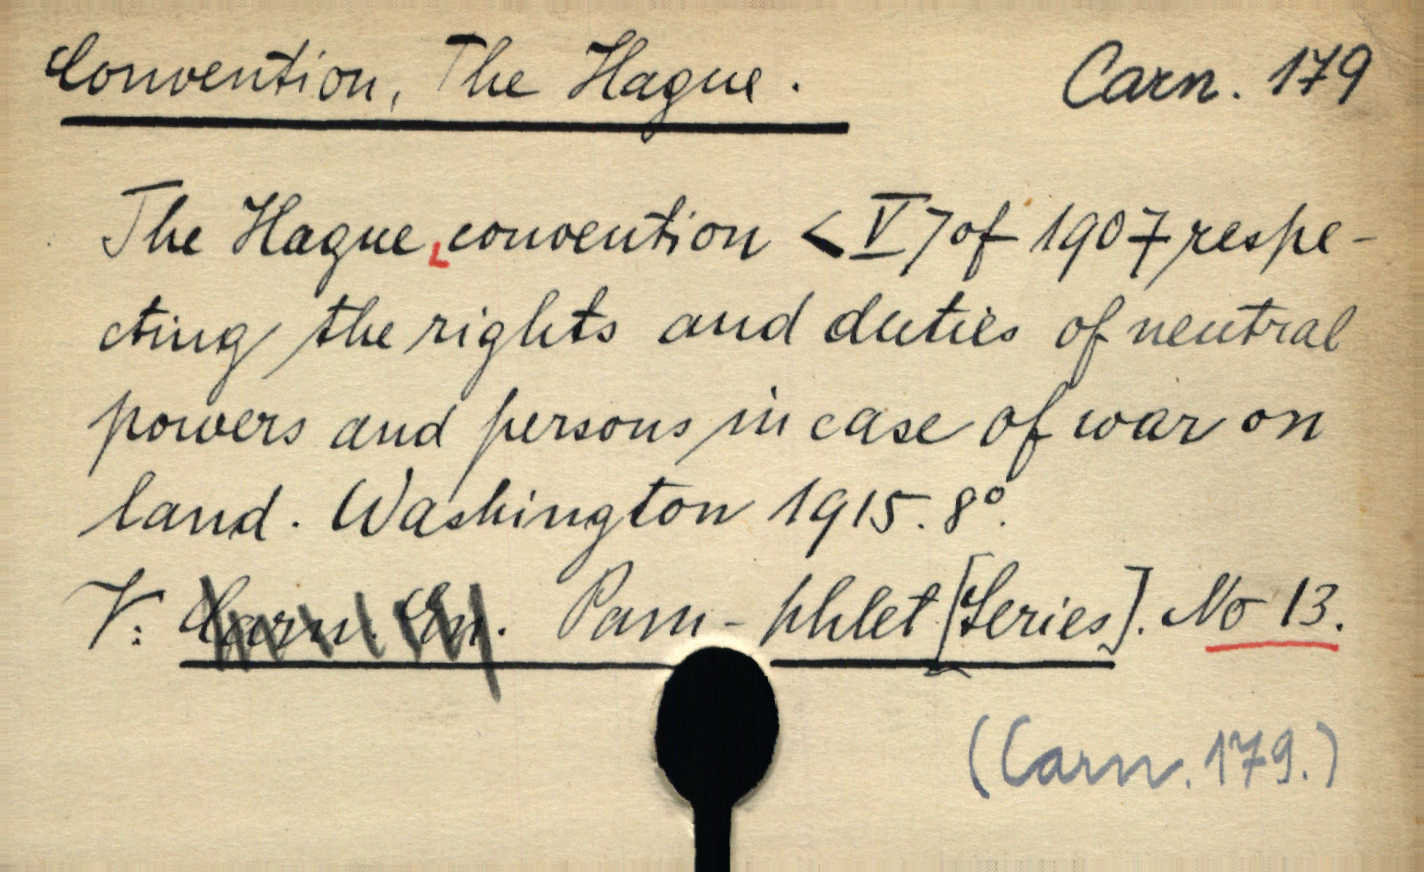 Convention, The Hague. Carn. 179
The Hague convention <V> of 1907 respe-
cting the rights and duties of neutral
powers and persons in case of war on
land. Washington 1915. 8°.
V: Carn. En. Pam-phlet [Series]. No 13.
(Carn. 179.)